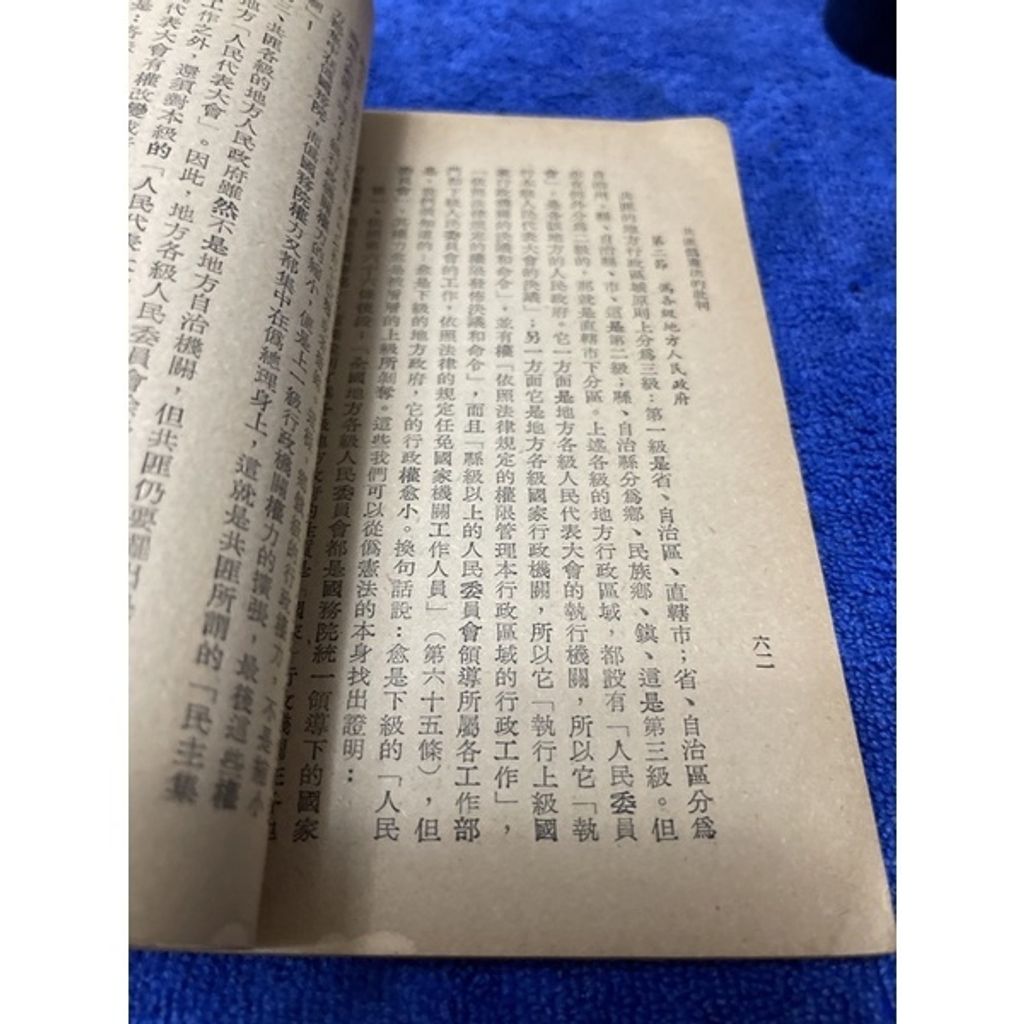 共匪僞憲法的批判
六二
第二節 僞各級地方人民政府
共匪的地方行政區域原則上分爲三級:第一級是省、自治區、直轄市;省、自治區分爲
自治州、縣、自治縣、市、這是第二級;縣、自治縣分爲鄉、民族鄉、鎮、這是第三級。但
也有例外分爲二級的,那就是直轄市下分區。上述各級的地方行政區域,都設有「人民委員
會」,是各該地方的人民政府。它一方面是地方各級人民代表大會的執行機關,所以它「執
行本級人民代表大會的決議」;另一方面它是地方各級國家行政機關,所以它「執行上級國
家行政機關的決議和命令」,並有權「依照法律規定的權限管理本行政區域的行政工作」,
「依照法律規定的權限發佈決議和命令」,而且「縣級以上的人民委員會領導所屬各工作部
門和下級人民委員會的工作,依照法律的規定任免國家機關工作人員」(第六十五條),但
是,我們須知道的:愈是下級的地方政府,它的行政權愈小。換句話說:愈是下級的「人民
委員會」,其權力愈是被層層的上級所剝奪。這些我們可以從僞憲法的本身找出證明:
「全國地方各級人民委員會都是國務院統一領導下的國家
級行政機關權力的擴張,最後這些權
僞國務院,而僞國務院權力又都集中在僞總理身上,這就是共匪所謂的「民主集
三、共匪各級的地方人民政府雖然不是地方自治機關,但共匪仍要
地方「人民代表大會」。因此,地方各級人民委員會
工作之外,還須對本級的「人民代表大
代表大會有權改變或